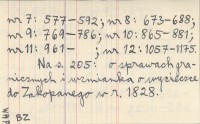 nr 7: 577-592; nr 8: 673-688;
nr 9: 769-786; nr 10: 865-881;
nr 11: 961- ; nr 12: 1057-1175.
Na s. 205: o sprawach gra-
nicznych i wzmianka o wycieczce
do Zakopanego w r. 1828.
BZ